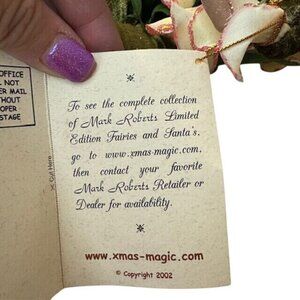 OFFICE
L NOT
ER MAIL
THOUT
OPER
STAGE
Cut Here
To see the complete collection
of Mark Roberts Limited
Edition Fairies and Santa's,
go to www.xmas-magic.com,
then contact your favorite
Mark Roberts Retailer or
Dealer for availability.
www.xmas-magic.com
© Copyright 2002